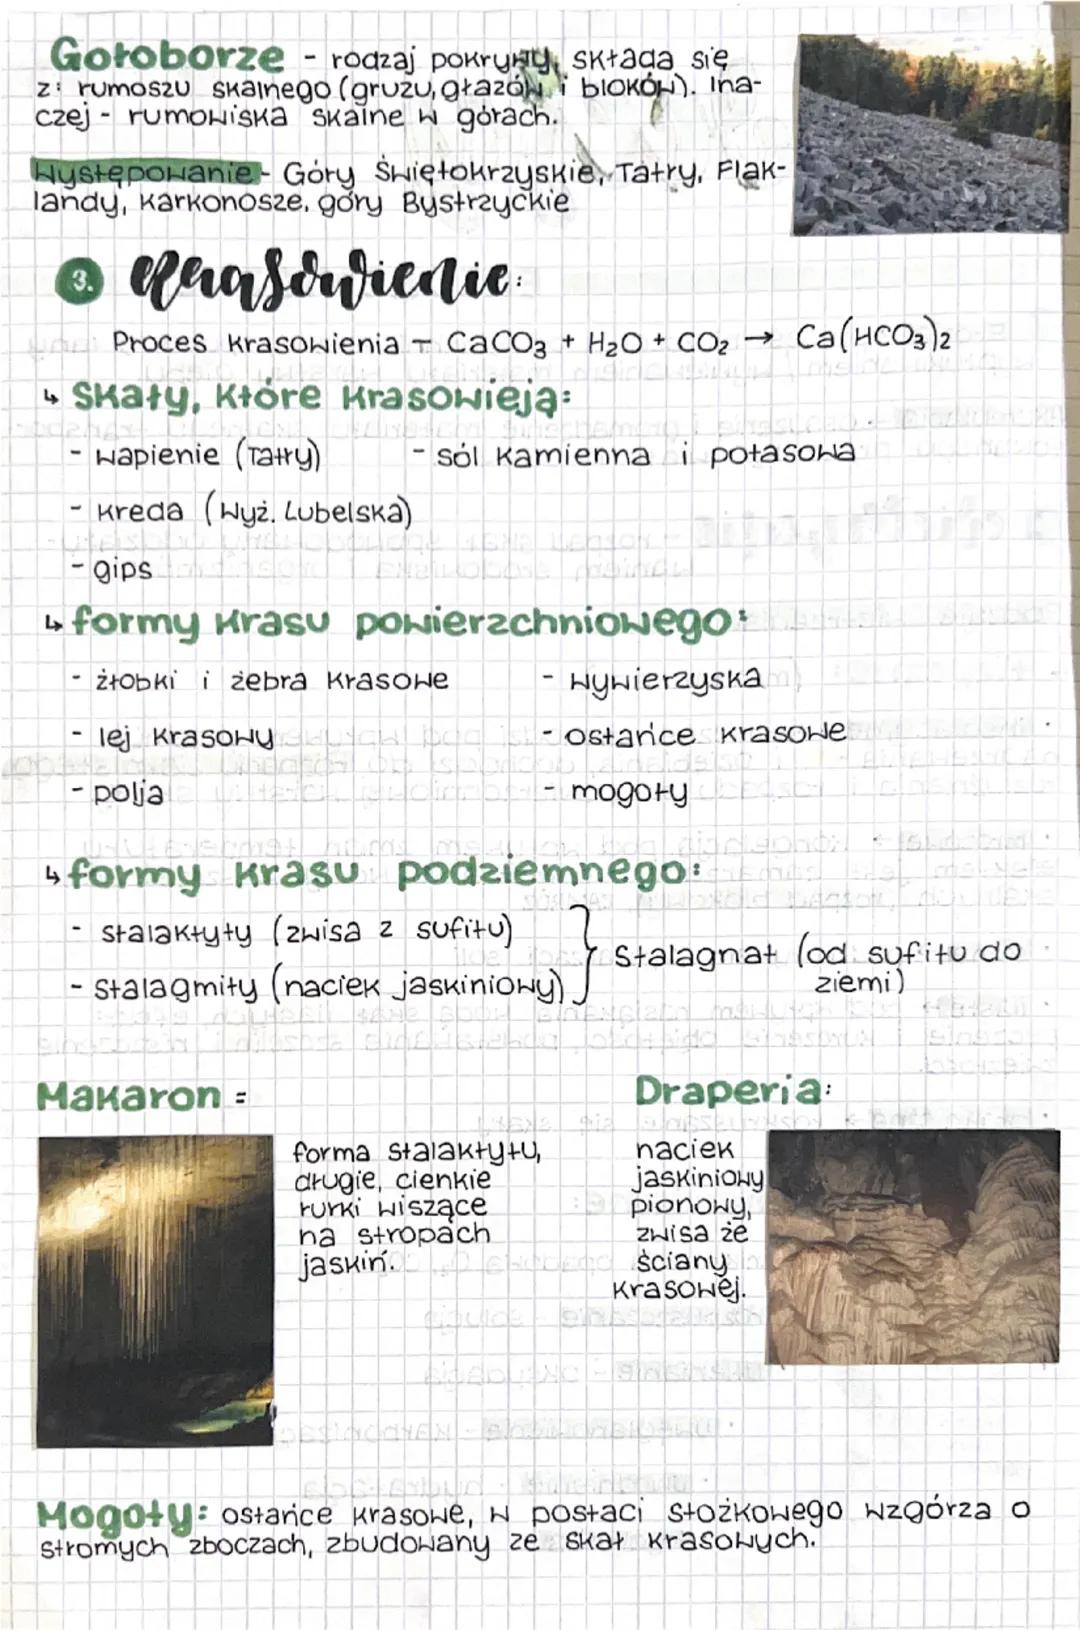 Gołoborze - rodzaj pokrywy, składa się
z: rumoszu skalnego (gruzu, głazów i bloków). Ina-
czej - rumowiska skalne w górach.
Występowanie - Góry Świętokrzyskie, Tatry, Flak-
landy, Karkonosze, góry Bystrzyckie
3. Krasowienie:
Proces krasowienia - CaCO3 + H2O + CO2 → Ca(HCO3)2
↳ Skały, które krasowieją:
- wapienie (Tatry) - sól kamienna i potasowa
- kreda (Wyż. Lubelska)
- gips
↳ formy krasu powierzchniowego:
- żłobki i żebra krasowe - wywierzyska
- lej krasowy - ostańce krasowe
- polja - mogoty
↳ formy krasu podziemnego:
- stalaktyty (zwisa z sufitu)
- stalagmity (naciek jaskiniowy)
} Stalagnat (od sufitu do
ziemi)
Makaron =
forma stalaktytu,
długie, cienkie
rurki wiszące
na stropach
jaskiń.
Draperia:
naciek
jaskiniowy
pionowy,
zwisa że
ściany
krasowej.
Mogoty: ostańce krasowe, w postaci stożkowego wzgórza o
stromych zboczach, zbudowany ze skał krasowych.